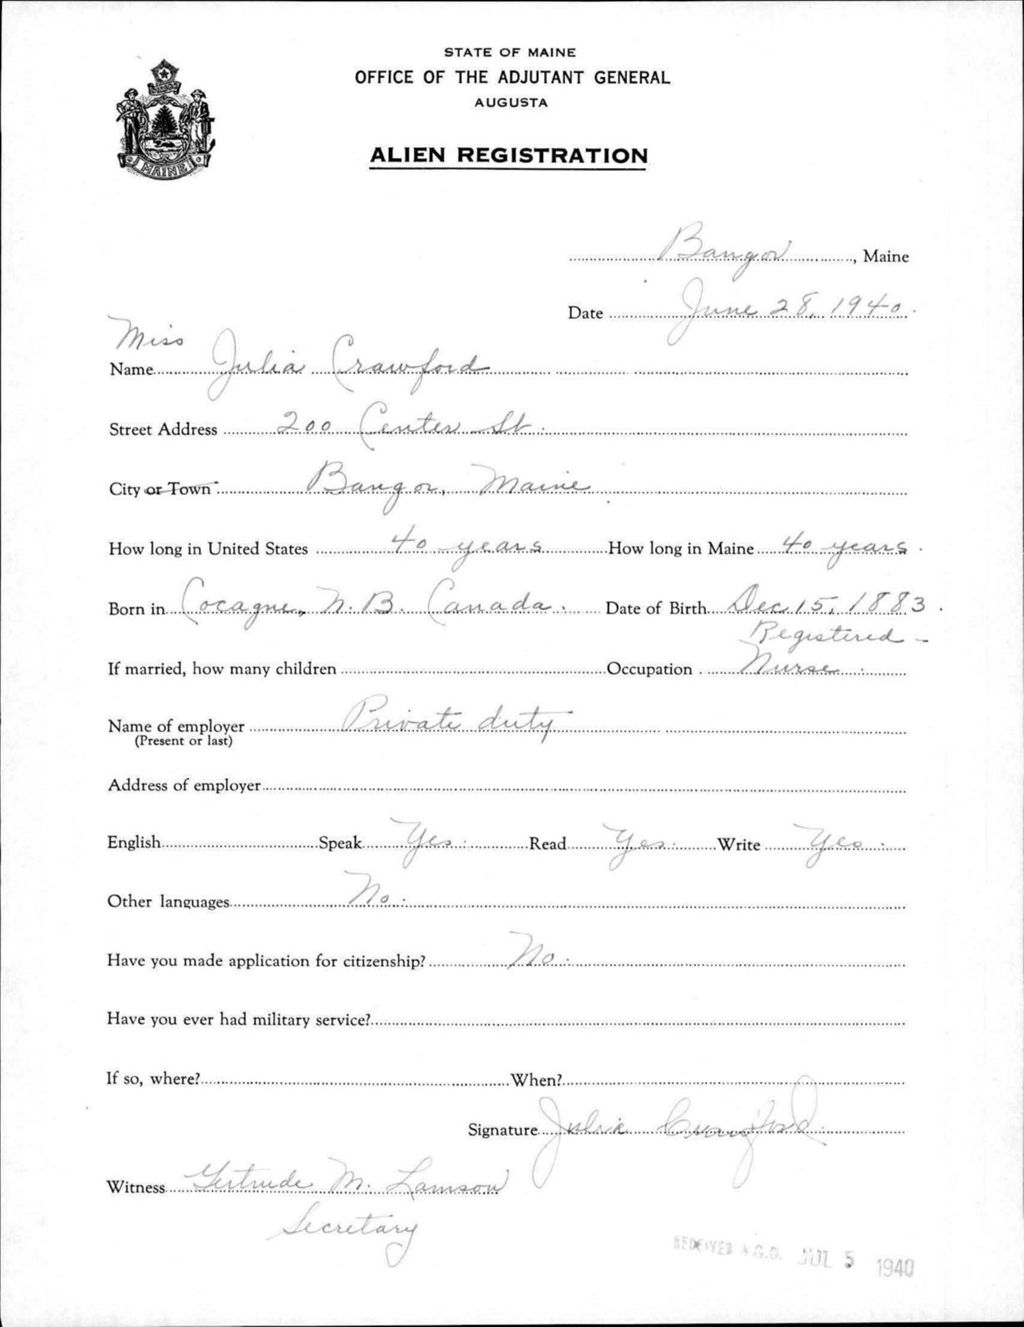 STATE OF MAINE
OFFICE OF THE ADJUTANT GENERAL
AUGUSTA
ALIEN REGISTRATION
MAINE
Bangor, Maine
Date June 28, 1940.
Miss
Name Julia Crawford
Street Address 200 Center St.
City or Town Bangor, Maine
How long in United States 40 years How long in Maine 40 years.
Born in Cocagne, N. B. Canada. Date of Birth Dec 15, 1883.
Registered
If married, how many children Occupation Nurse.
Name of employer Private duty
(Present or last)
Address of employer
English Speak Yes. Read Yes. Write Yes.
Other languages No.
Have you made application for citizenship? No.
Have you ever had military service?
If so, where? When?
Signature Julia Crawford
Witness Gertrude M. Lamson
Secretary
RECEIVED A.G.O. JUL 5 1940